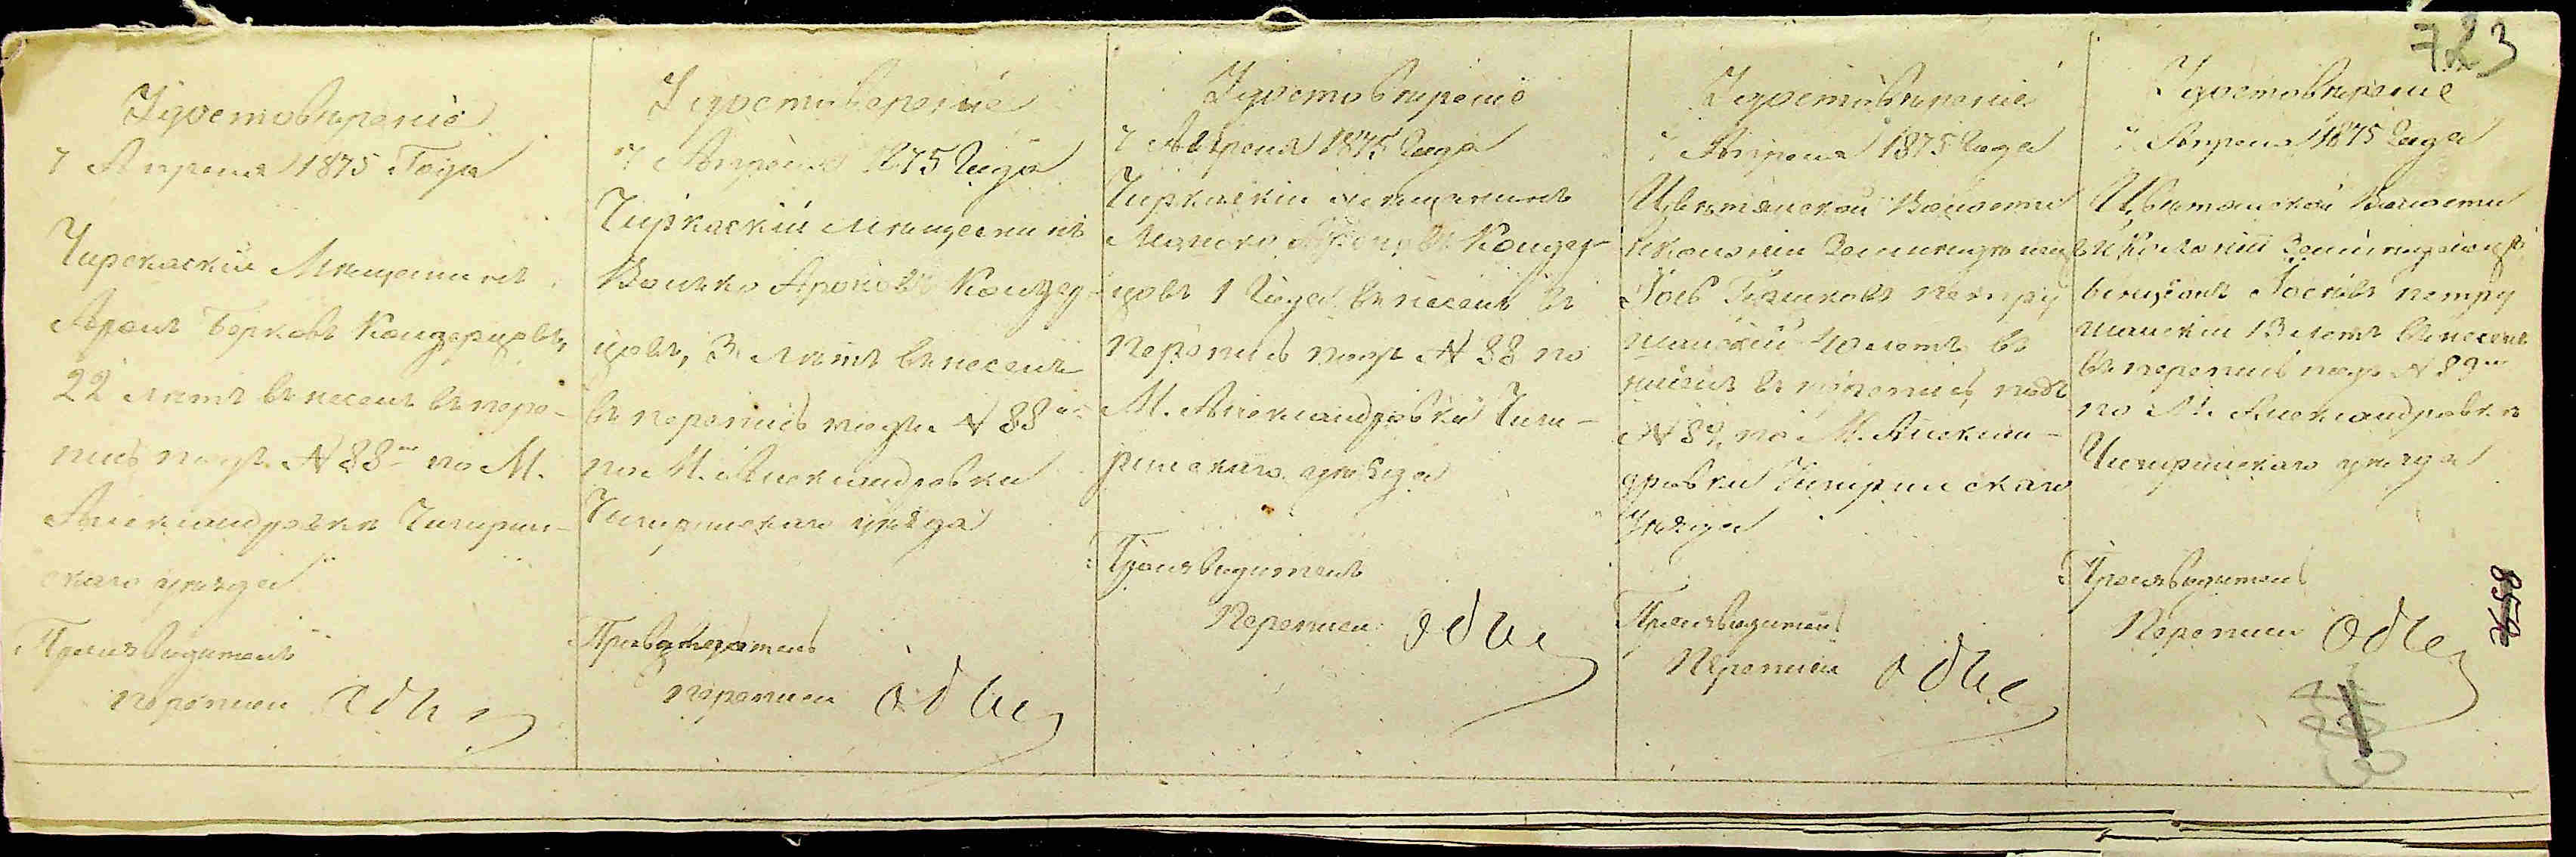 723
Удостовѣреніе
7 Апреля 1875 Года
Чиркаскій Мѣщанинъ
Аронъ Берковъ Кондерцовъ,
22 лѣтъ внесенъ въ пере-
пись подъ № 88 по М.
Александровкѣ Чигирин-
скаго уѣзда
Производитель
переписи
Удостовереніе
7 Апреля 1875 Года
Чиркаскій мѣщанинъ
Волько Ароновъ Кондер-
цовъ, 3 лѣтъ внесенъ
въ перепись подъ № 88
по М. Александровки
Чигиринскаго уѣзда
Производитель
переписи
Удостовѣреніе
7 Апреля 1875 Года
Чиркаскій мѣщанинъ
Ароновъ Кондер-
цовъ 1 Года внесенъ въ
перепись подъ № 88 по
М. Александровки Чиги-
ринскаго уѣзда
Производитель
Переписи
Удостовѣреніе
7 Апреля 1875 Года
Цвѣтянской Волости
колоніи
петру
шанскій 40 летъ в
въ перепись подъ
№ 89, по М. Алексан-
дровки Чигиринскаго
Уѣзда
Производитель
Переписи
Удостовѣреніе
7 Апреля 1875 Года
Цвѣтянской Волости
Колоніи
Іосивъ петру
шанскій 13 летъ внесенъ
въ перепись подъ № 89
по М. Александровкѣ
Чигиринскаго уѣзда
Производитель
Переписи